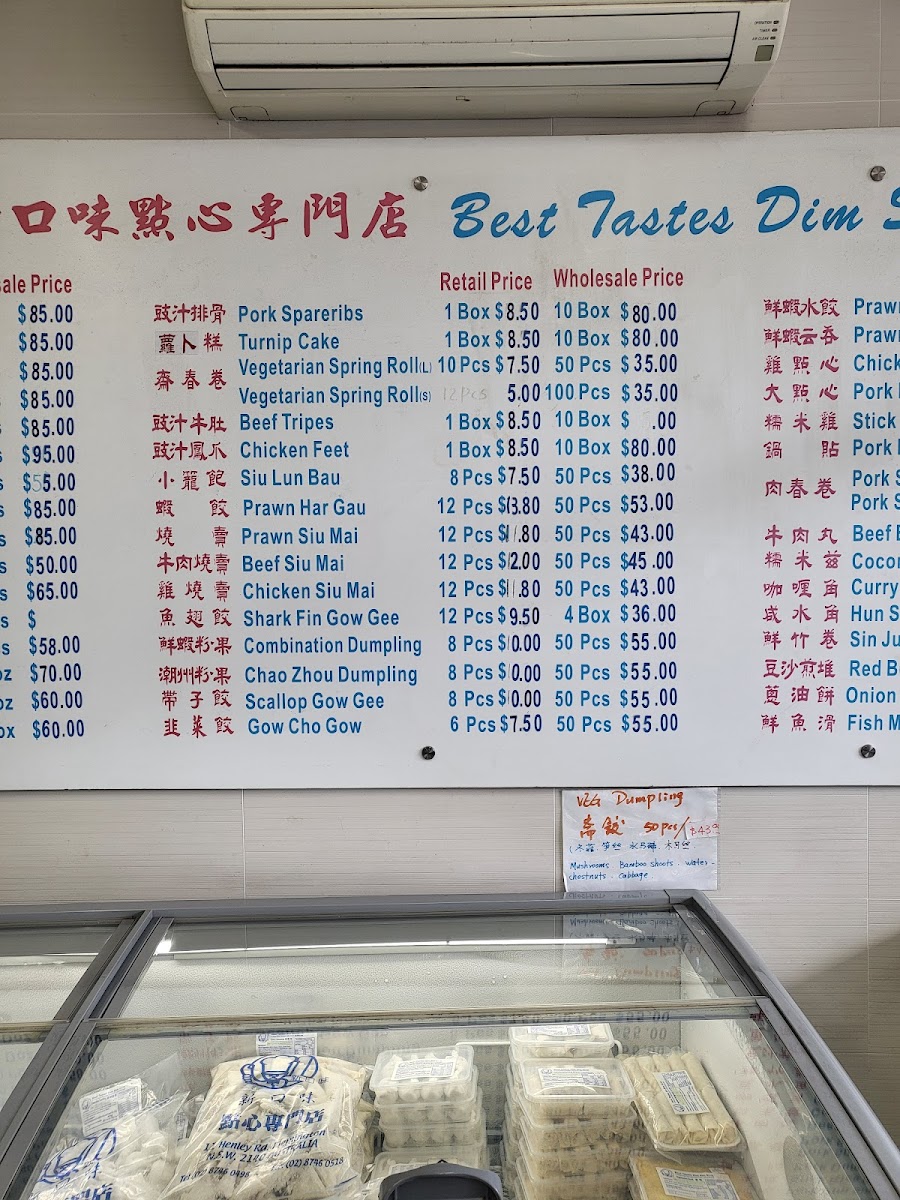 口味點心專門店 Best Tastes Dim
Retail Price Wholesale Price
ale Price
$85.00
$85.00
$85.00
$85.00
$85.00
$95.00
$55.00
$85.00
$85.00
$50.00
$65.00
$
$58.00
$70.00
$60.00
$60.00
豉汁排骨 Pork Spareribs 1 Box $8.50 10 Box $80.00
蘿卜糕 Turnip Cake 1 Box $8.50 10 Box $80.00
齋春卷 Vegetarian Spring Roll(L) 10 Pcs $7.50 50 Pcs $35.00
Vegetarian Spring Roll(S) 12 Pcs 5.00 100 Pcs $35.00
豉汁牛肚 Beef Tripes 1 Box $8.50 10 Box $ .00
豉汁鳳爪 Chicken Feet 1 Box $8.50 10 Box $80.00
小籠飽 Siu Lun Bau 8 Pcs $7.50 50 Pcs $38.00
蝦餃 Prawn Har Gau 12 Pcs $13.80 50 Pcs $53.00
燒賣 Prawn Siu Mai 12 Pcs $11.80 50 Pcs $43.00
牛肉燒賣 Beef Siu Mai 12 Pcs $12.00 50 Pcs $45.00
雞燒賣 Chicken Siu Mai 12 Pcs $11.80 50 Pcs $43.00
魚翅餃 Shark Fin Gow Gee 12 Pcs $9.50 4 Box $36.00
鮮蝦粉果 Combination Dumpling 8 Pcs $10.00 50 Pcs $55.00
潮州粉果 Chao Zhou Dumpling 8 Pcs $10.00 50 Pcs $55.00
帶子餃 Scallop Gow Gee 8 Pcs $10.00 50 Pcs $55.00
韭菜餃 Gow Cho Gow 6 Pcs $7.50 50 Pcs $55.00
鮮蝦水餃 Prawn
鮮蝦云吞 Prawn
雞點心 Chick
大點心 Pork
糯米雞 Stick
鍋貼 Pork
肉春卷 Pork S
Pork S
牛肉丸 Beef
糯米茲 Coco
咖喱角 Curry
咸水角 Hun S
鮮竹卷 Sin Ju
豆沙煎堆 Red B
蔥油餅 Onion
鮮魚滑 Fish M
VEG Dumpling
齋餃 50pcs/$43.00
Mushrooms. Bamboo shoots. water-
chestnuts. cabbage
新口味
點心專門店
17 Henley Rd, Flemington
N.S.W. 2140 AUSTRALIA
Tel: (02) 8746 0498 Fax: (02) 8746 0518